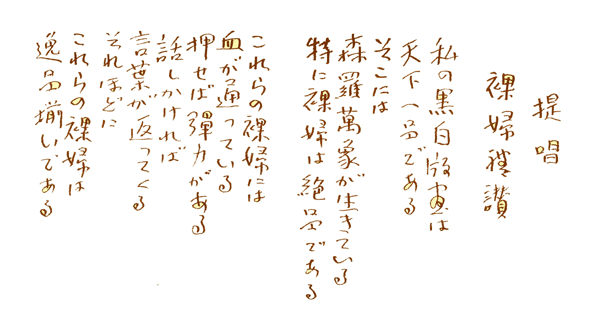 提唱
裸婦礼讃
私の黒白版画は
天下一品である
そこには
森羅萬象が生きている
特に裸婦は絶品である
これらの裸婦には
血が通っている
押せば彈力がある
話しかければ
言葉が返ってくる
それほどに
これらの裸婦は
逸品揃いである